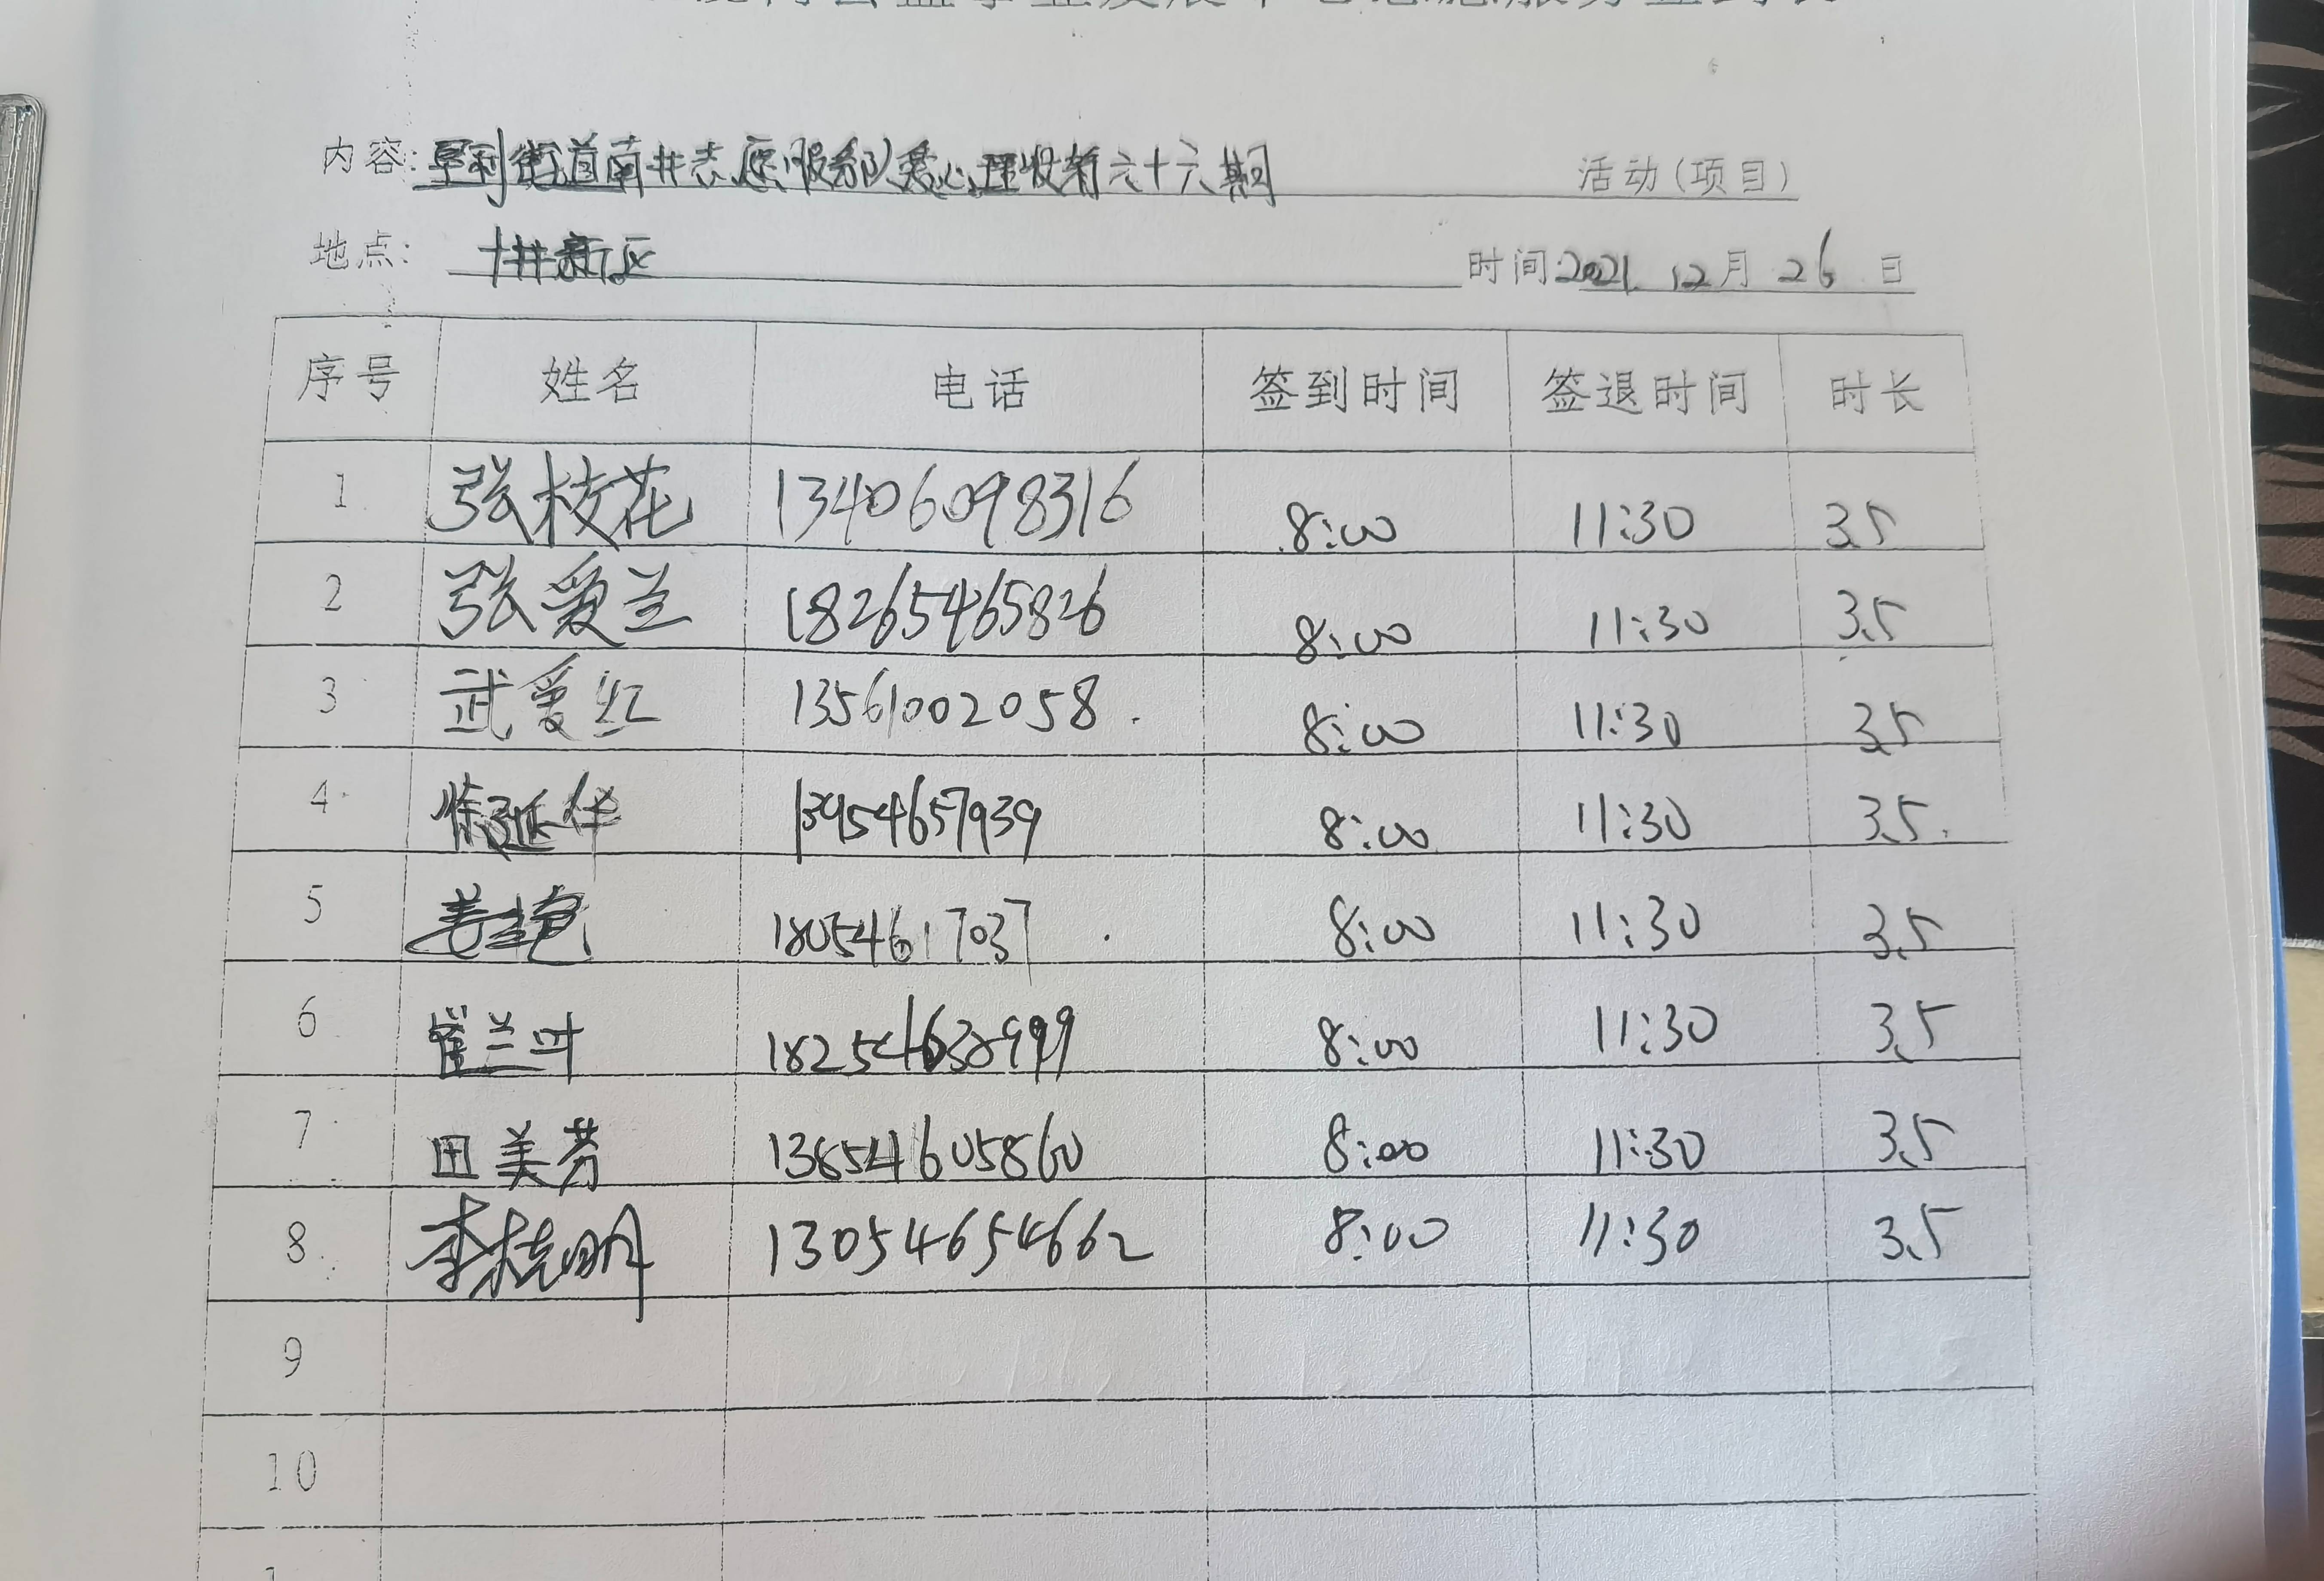 内容:垦利街道南井志愿服务队爱心理发第六十六期 活动(项目)
地点: 十井新区 时间2021.12月26日
序号 姓名 电话 签到时间 签退时间 时长
1 张枝花 13406098316 8:00 11:30 3.5
2 张爱兰 18265465826 8:00 11:30 3.5
3 武爱红 13561002058 8:00 11:30 3.5
4 徐延华 13954657939 8:00 11:30 3.5
5 18054617037 8:00 11:30 3.5
6 崔兰叶 18254638999 8:00 11:30 3.5
7 田美芳 13854605860 8:00 11:30 3.5
8 李桂明 13054654662 8:00 11:30 3.5
9
10